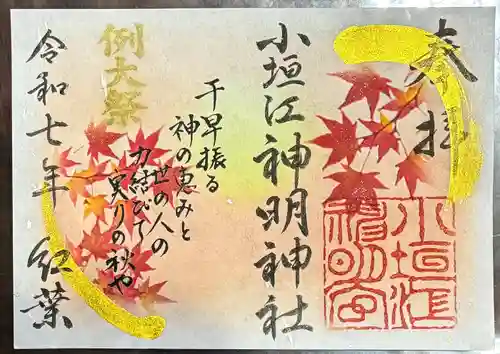 奉拝
小垣江
神明宮
小垣江神明神社
千早振る
神の恵みと
世の人の
力結びて
実りの秋や
例大祭
令和七年 紅葉